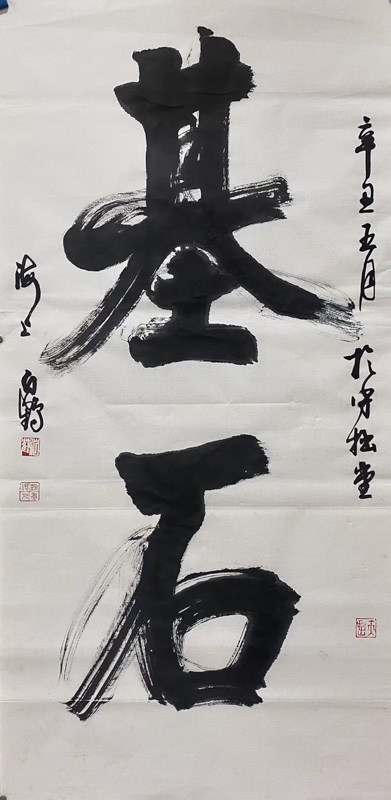 基石
辛丑五月於守拙堂
海上白鹤